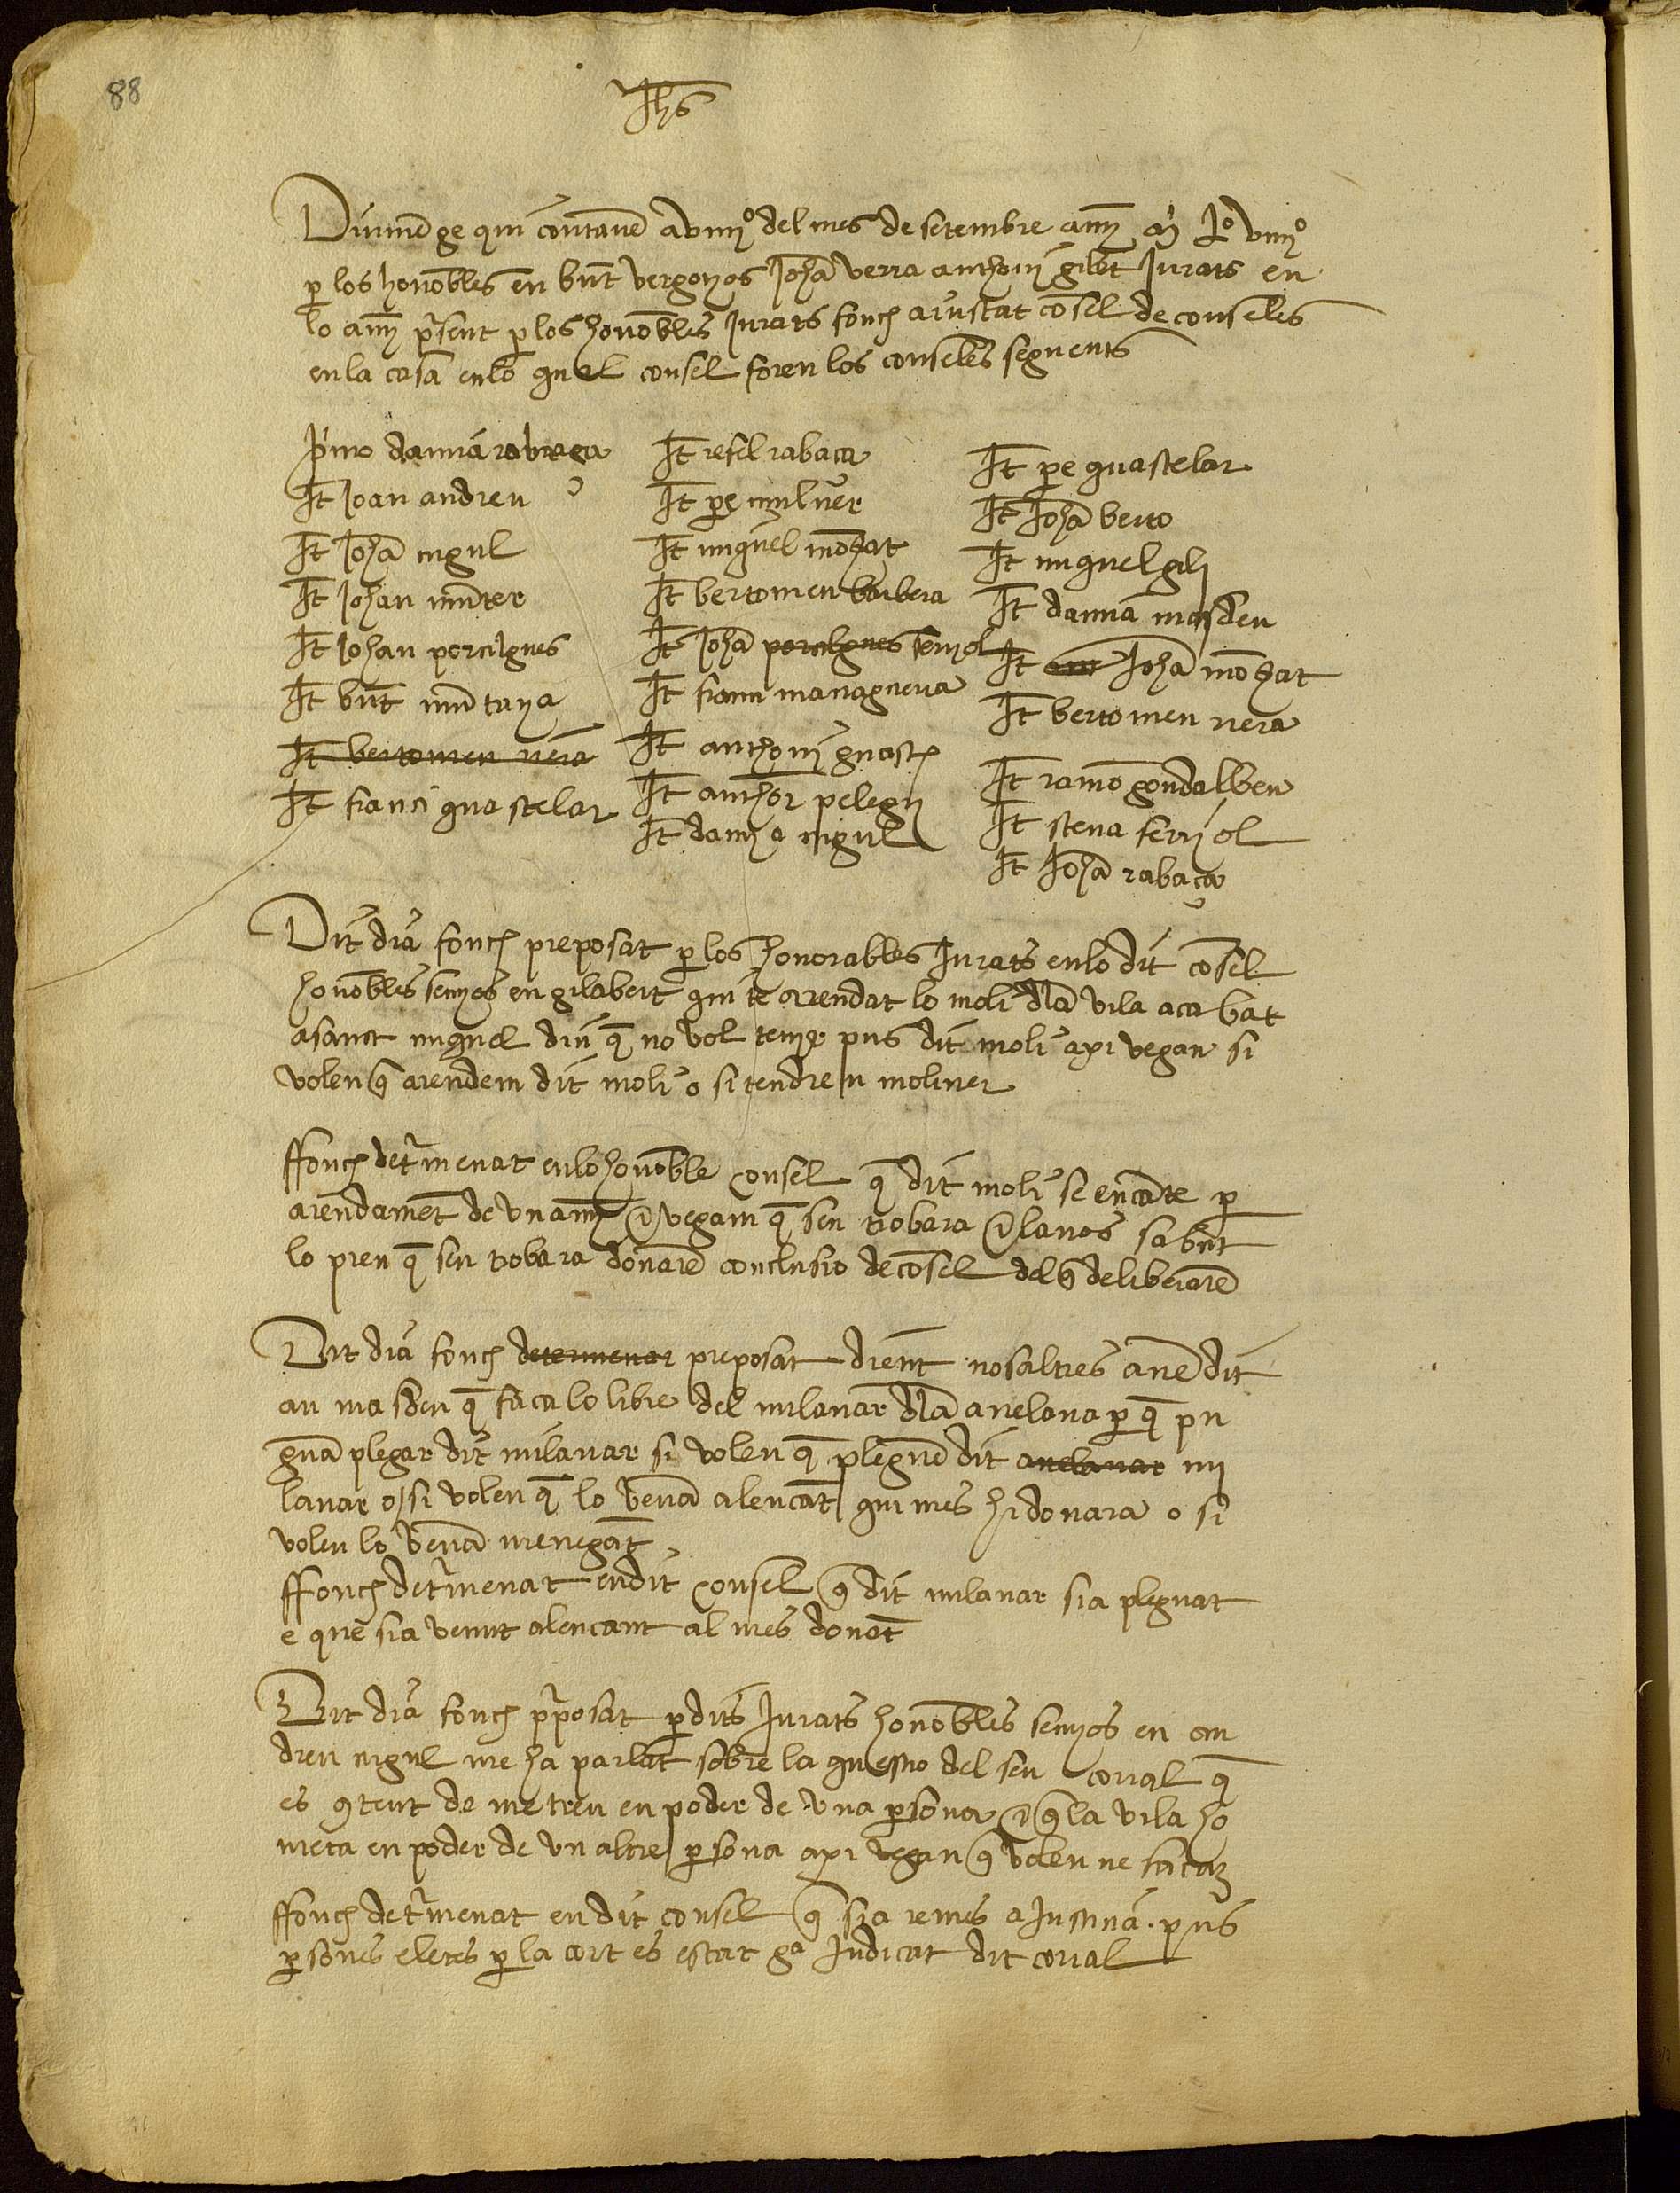 88
Jhs
Diumēge qui contavē a viiijº del mes de setembre any M Lº viiijº
p los honōbles en bnt vergonyos Johā verra anthoni gilbt Jurats en
lo any psent p los honōbles Jurats fonch aiustat cōsel de conseles
en la casa en lo qual consel foren los conselēs seguents
pimo damiā rabaça
It Joan andreu
It Johā nigul
It Johan munter
It Johan porcilgues
It bnt muntanya
It bertomeu nera
It franci guastelar
It rafel rabaça
It pe muluer
It miguel mōsat
It bertomeu barbera
It Johā porcilgues senyol
It fiam managuera
It anthoni guasch
It anthoni pelegri
It damia nigul
It pe guastelar
It Johā berto
It miguel gili
It damiā masdeu
It Johā mōsat
It bertomeu nera
It ramō gondalbeu
It steva ferriol
It Johā rabaça
Dit dia fonch preposat p los honorables Jurats en lo dit cōsel
honōbles senyos en gilabert qui te arrendat lo moli dla vila acabat
a sanct miguel diu q no vol tenir pus dit moli axi vegan si
volen q arendem dit moli o si tendren moliner
ffonch detmenat en lo honōble consel q dit moli se encāte p
arendamēt de un any e vegam q sen trobara e lavos sabut
lo preu q sen trobara donarē conclusio de cōsel del q deliberarē
Dit dia fonch determenat preposat dient nosaltres avē dit
an masdeu q faca lo libre del milanar dla avelana p q pu
guā plegar dit milanar si volen q pleguē dit avelanar mi
lanar o si volen q lo venā al encāt qui mes hi donara o si
volen lo venā menegāt
ffonch detmenat en dit consel q dit milanar sia pleguat
e quē sia venut al encant al mes donāt
Dit dia fonch pposat p dits Jurats honōbles senyos en an
dreu nigul me ha parlat sobre la questio del seu corral q
es 9tent de metreu en poder de una psona e q la vila ho
meta en poder de un altre psona axi vegan q volen ne façam
ffonch detmenat en dit consel q sia remes a Justicia. pus
psones eletes p la cort es estat ga Judicat dit corral